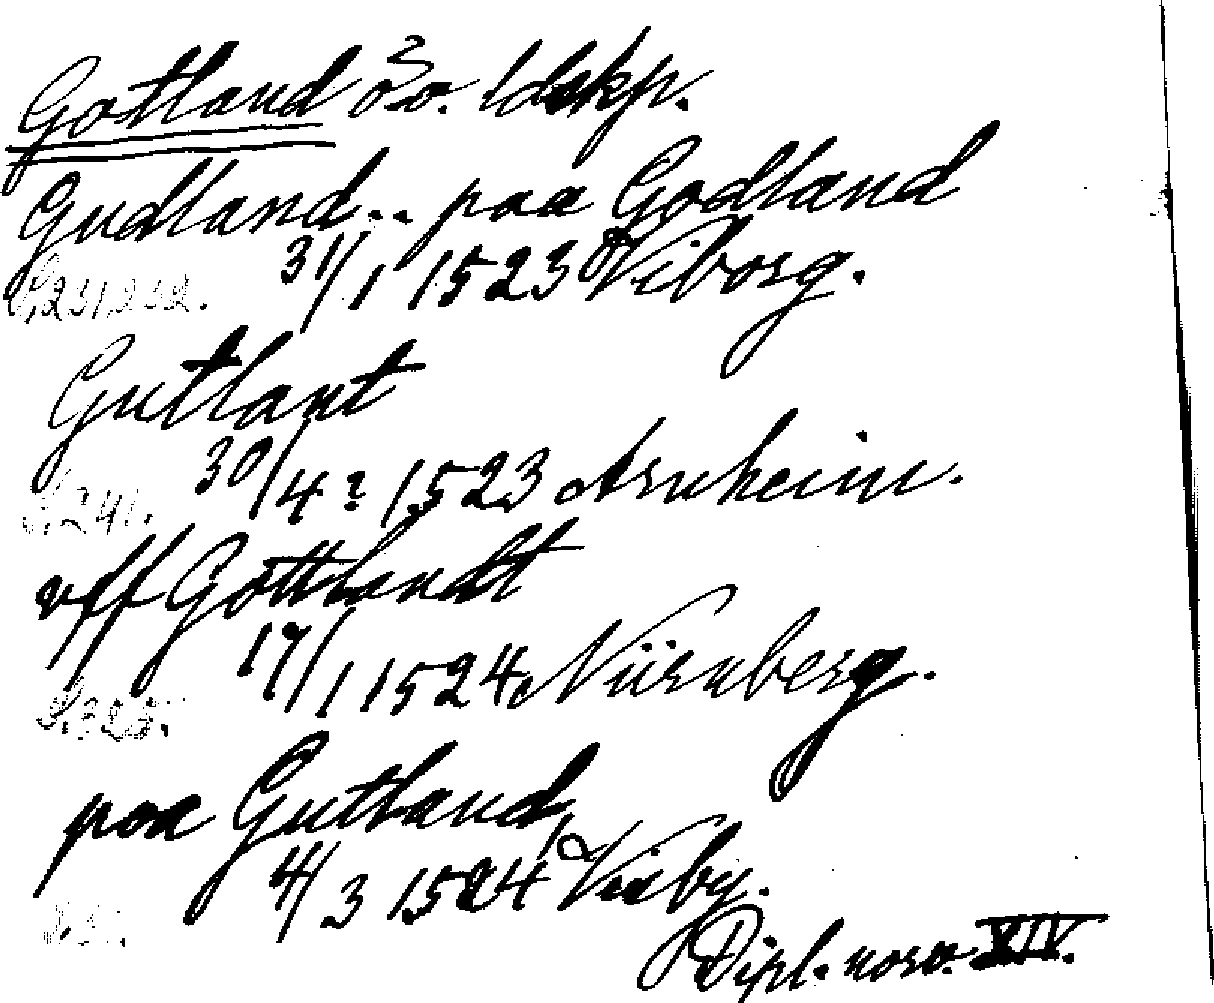 Gotland ö o. ldskp.
Gudland.. paa Godland
31/1 1523 Viborg.
S. 231, 232.
Gutlant
30/4? 1523 Arnheim.
S. 241.
vff Gottlandt
17/1 1524 Nürnberg.
S. 325.
paa Gutland
4/3 1524 Visby.
Dipl. norv. XIV.